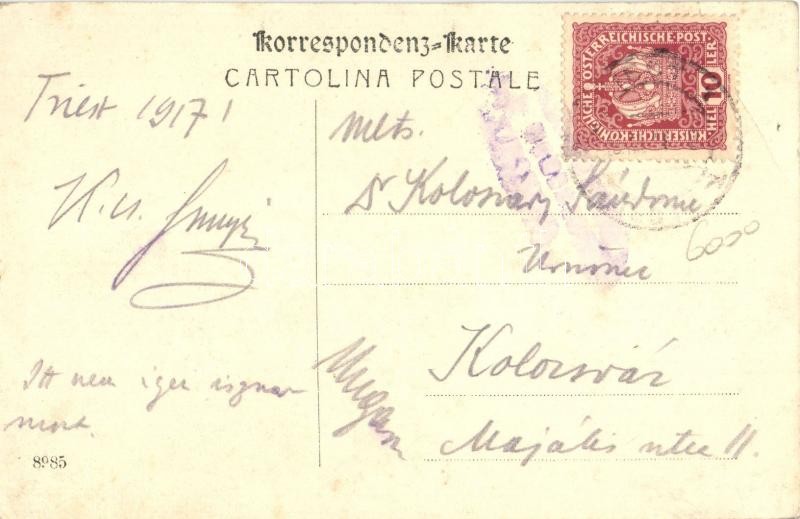 Korrespondenz=Karte
CARTOLINA POSTALE
KAISERLICHE·KÖNIGLICHE ÖSTERREICHISCHE·POST
10 HELLER
Triest 1917
Itt nem igen
most.
8985
Mlts.
Dr Kolosvary Sándorne
Urnőnek
Kolozsvár
Majális utca 11.
6000